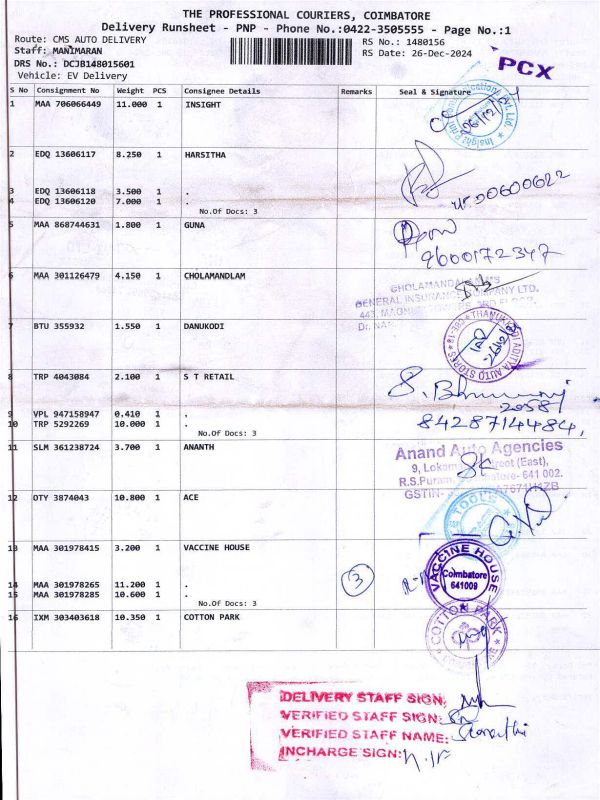 THE PROFESSIONAL COURIERS, COIMBATORE
Delivery Runsheet - PNP - Phone No.:0422-3505555 - Page No.:1
Route: CMS AUTO DELIVERY
RS No.: 1480156
Staff: MANIMARAN
RS Date: 26-Dec-2024
DRS No.: DCJB148015601
Vehicle: EV Delivery
PCX
S No Consignment No Weight PCS Consignee Details Remarks Seal & Signature
1 MAA 706066449 11.000 1 INSIGHT
26/12/24
2 EDQ 13606117 8.250 1 HARSITHA
3 EDQ 13606118 3.500 1 .
4 EDQ 13606120 7.000 1 .
No.Of Docs: 3
5 MAA 868744631 1.800 1 GUNA
9600172347
6 MAA 301126479 4.150 1 CHOLAMANDLAM
GENERAL INSURANCE COMPANY LTD.
7 BTU 355932 1.550 1 DANUKODI
ADITYA AUTO STORES
8 TRP 4043084 2.100 1 S T RETAIL
20587
9 VPL 947158947 0.410 1 .
10 TRP 5292269 10.000 1 .
8428714484,
No.Of Docs: 3
11 SLM 361238724 3.700 1 ANANTH
Anand Auto Agencies
9, Street (East),
R.S.Puram, 641 002.
GSTIN-
12 OTY 3874043 10.800 1 ACE
TOOLS
13 MAA 301978415 3.200 1 VACCINE HOUSE
VACCINE HOUSE
Coimbatore
641009
14 MAA 301978265 11.200 1 .
3
15 MAA 301978285 10.600 1 .
No.Of Docs: 3
16 IXM 303403618 10.350 1 COTTON PARK
COTTON PARK
DELIVERY STAFF SIGN:
VERIFIED STAFF SIGN:
VERIFIED STAFF NAME:
INCHARGE SIGN: